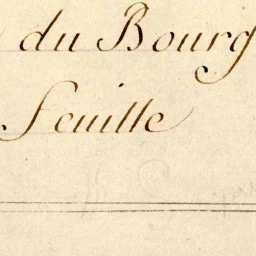 du Bourg
feuille